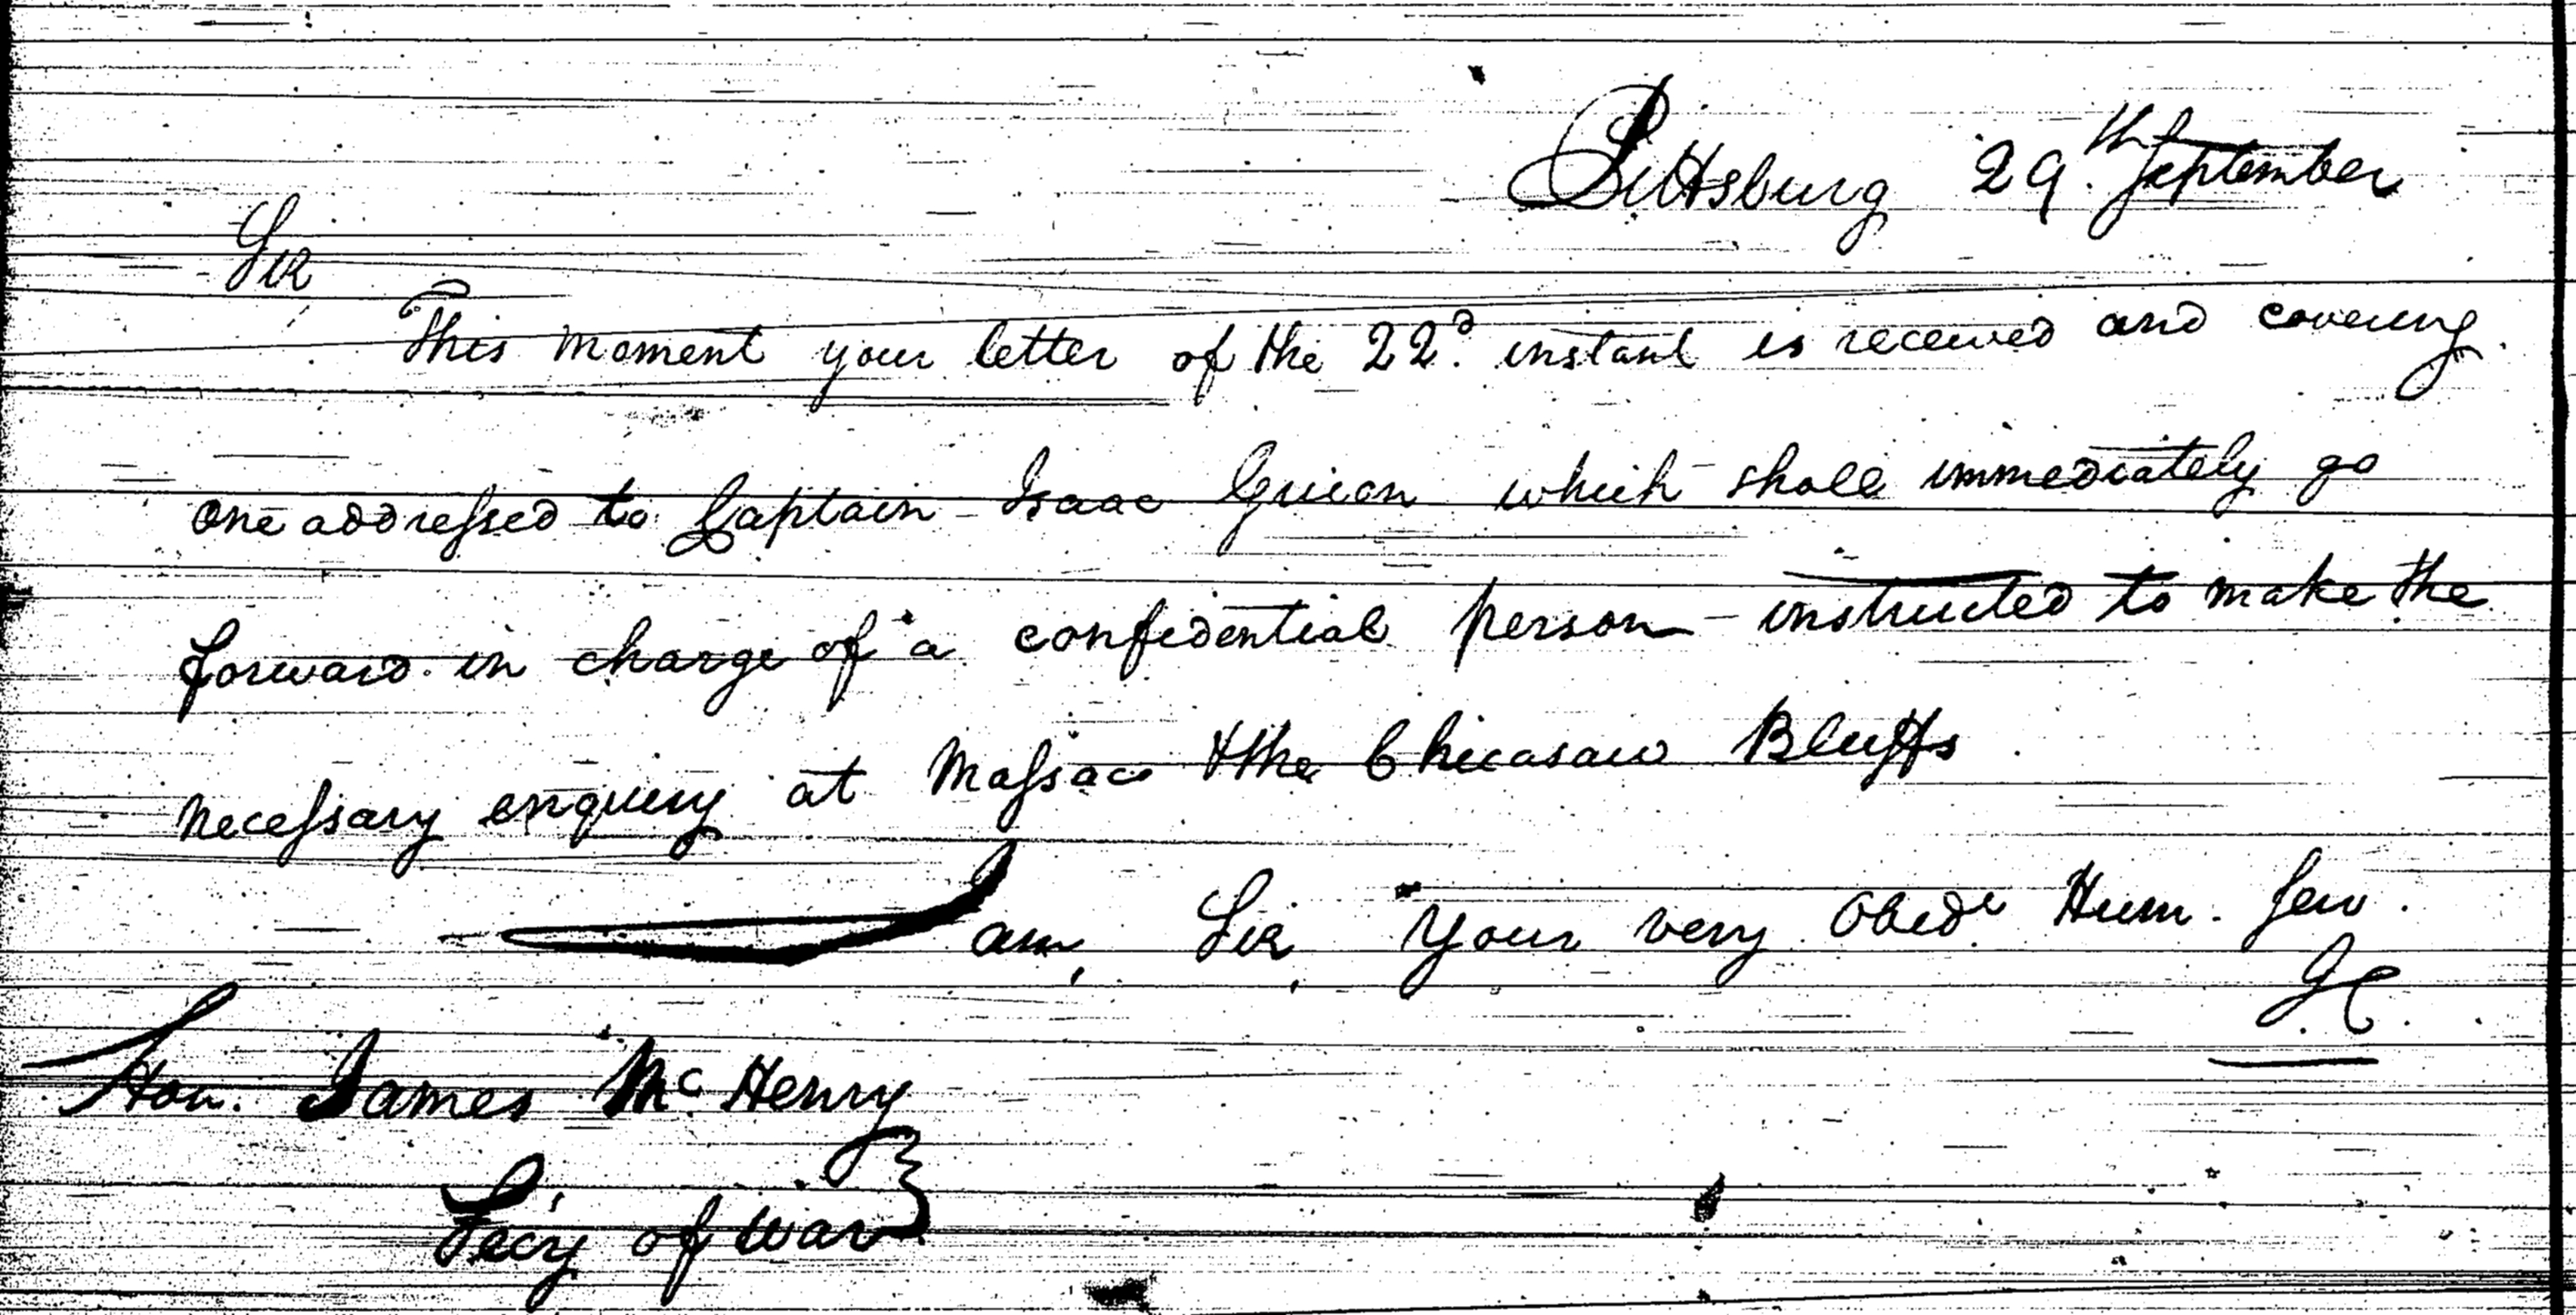 Pittsburg 29th. September
Sir
This moment your letter of the 22d. instant is received and covering
one addressed to Captain Isaac Guion which shall immediately go
forward in charge of a confidential person instructed to make the
necessary enquiry at Massac & the Chicasaw Bluffs
I am, Sir, Your very Obedt. Hum. Serv.
Hon. James McHenry
Sec'y of War